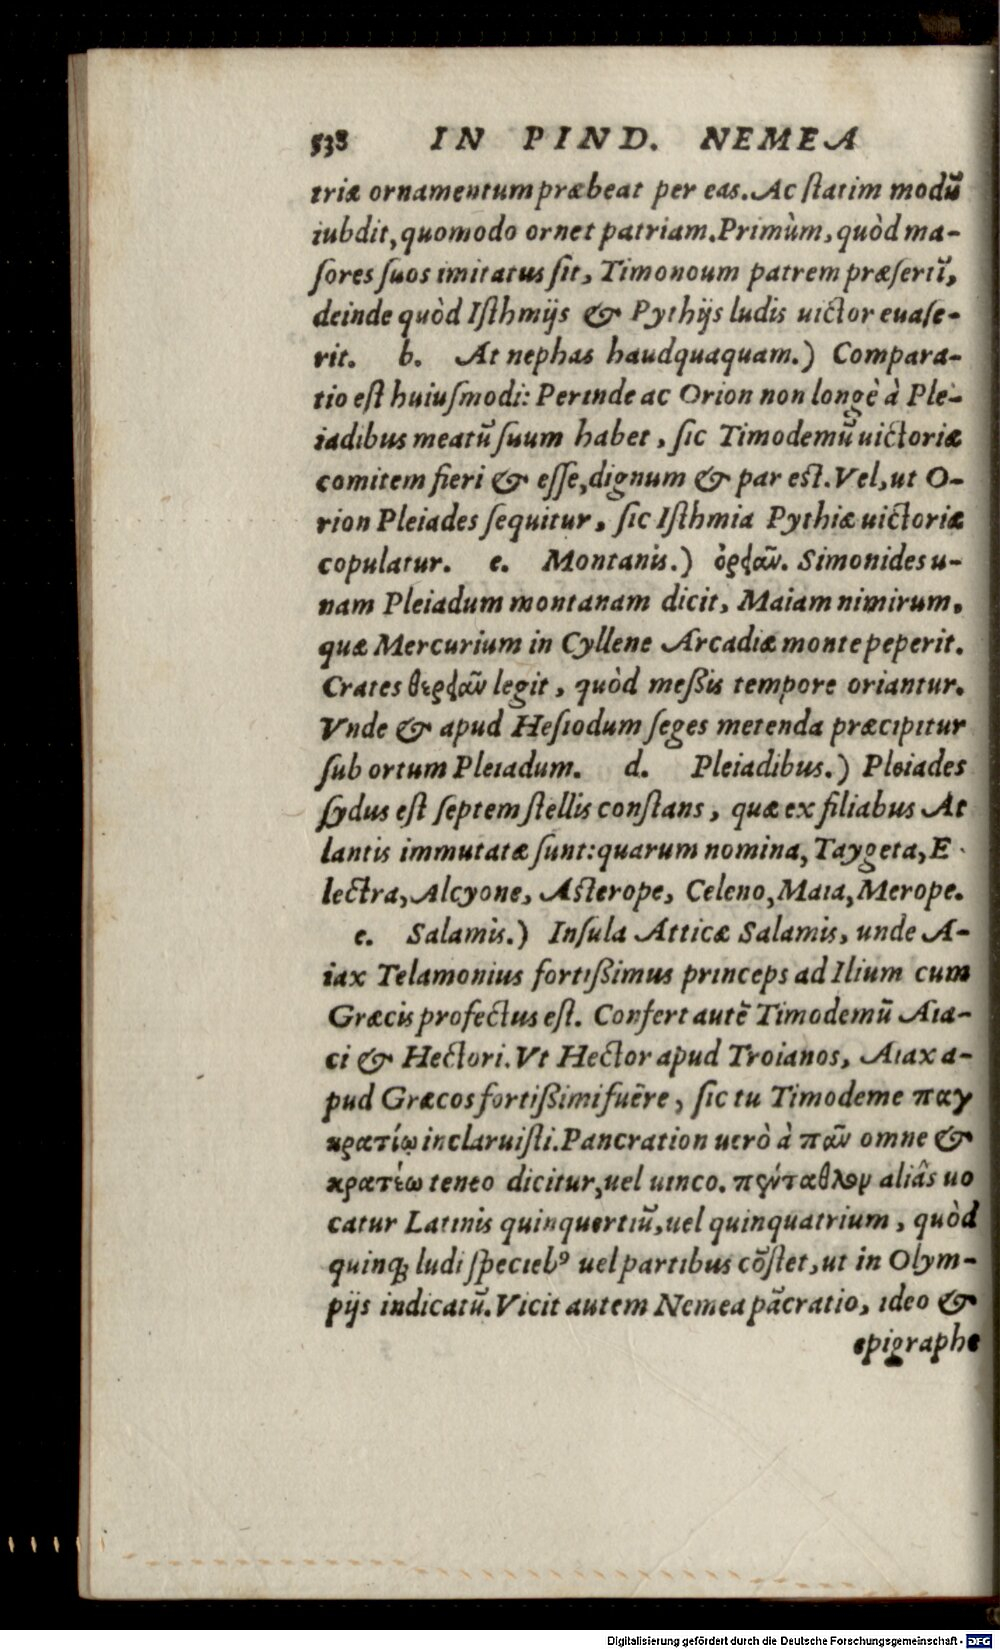 538 IN PIND. NEMEA
triæ ornamentum præbeat per eas. Ac ſtatim modũ
ſubdit, quomodo ornet patriam. Primùm, quòd ma-
iores ſuos imitatus ſit, Timonoum patrem præſertĩ,
deinde quòd Iſthmijs & Pythijs ludis uictor euaſe-
rit. b. At nephas haudquaquam.) Compara-
tio eſt huiuſmodi: Perinde ac Orion non longè à Ple-
iadibus meatũ ſuum habet, ſic Timodemũ uictoriæ
comitem fieri & eſſe, dignum & par eſt. Vel, ut O-
rion Pleiades ſequitur, ſic Iſthmia Pythiæ uictoriæ
copulatur. c. Montanis.) ὀρειᾶν. Simonides u-
nam Pleiadum montanam dicit, Maiam nimirum,
quæ Mercurium in Cyllene Arcadiæ monte peperit.
Crates θερειᾶν legit, quòd meßis tempore oriantur.
Vnde & apud Heſiodum ſeges metenda præcipitur
ſub ortum Pleiadum. d. Pleiadibus.) Pleiades
ſydus eſt ſeptem ſtellis conſtans, quæ ex filiabus At
lantis immutatæ ſunt: quarum nomina, Taygeta, E-
lectra, Alcyone, Aſterope, Celeno, Maia, Merope.
e. Salamis.) Inſula Atticæ Salamis, unde A-
iax Telamonius fortißimus princeps ad Ilium cum
Græcis profectus eſt. Confert autẽ Timodemũ Aia-
ci & Hectori. Vt Hector apud Troianos, Aiax a-
pud Græcos fortißimi fuẽre, ſic tu Timodeme παγ
κρατίῳ inclaruiſti. Pancration uerò à πᾶν omne &
κρατέω teneo dicitur, uel uinco. πένταθλον aliâs uo
catur Latinis quinquertiũ, uel quinquatrium, quòd
quinq; ludi ſpecieb⁹ uel partibus cõſtet, ut in Olym-
pijs indicatũ. Vicit autem Nemea pãcratio, ideo &
epigraphe
Digitalisierung gefördert durch die Deutsche Forschungsgemeinschaft - DFG